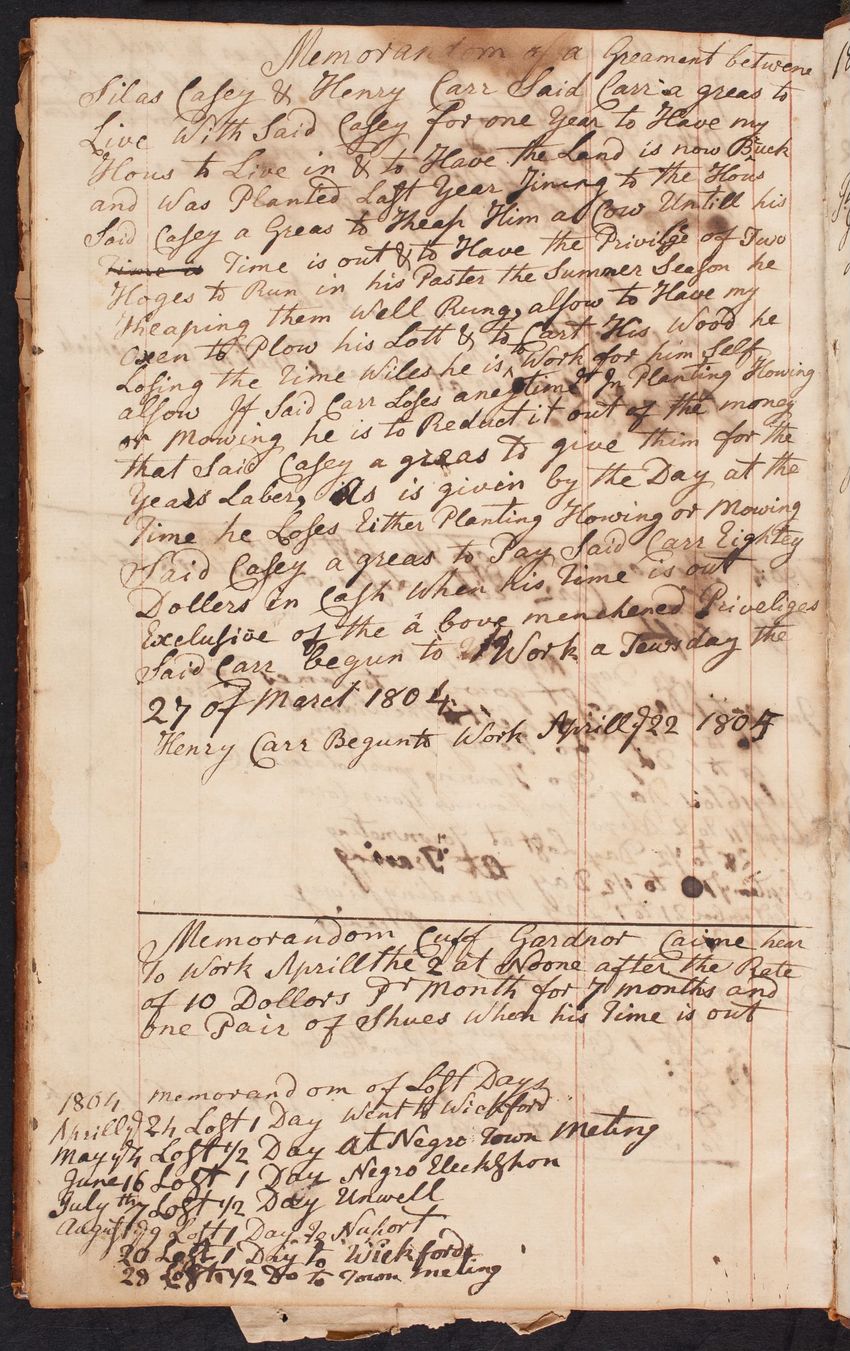 Memorandom of a Greament betwene
Silas Casey & Henry Carr Said Carr a greas to
Live With Said Casey for one Year to Have my
Hous to Live in & to Have the Land is now Buck
and Was Planted Last Year Jining to the Hous
Said Casey a Greas to Theap Him a Cow Untill his
Time is out & to Have the Privilge of Two
Hoges to Run in his Paster the Summer Season he
theaping them Well Rung, allsow to Have my
Oxen to Plow his Lott & to Cart His Wood he
Losing the Time Wiles he is to Work for him Self
allsow If Said Carr Loses aney time In Planting Howing
or Mowing he is to Reduct it out of the money
that Said Casey a greas to give him for the
Years Laber, As is givin by the Day at the
Time he Loses Either Planting Howing or Mowing
Said Casey a greas to Pay Said Carr Eightey
Dollers in Cash When his Time is out
Exclusive of the a bove menchened Priveliges
Said Carr begun to Work a Tewsday the
27 of March 1804
Henry Carr Begun to Work Aprill ye 22 1804
Memorandom Cuff Gardnor Caime hear
To Work Aprill the 2 at Noone after the Rate
of 10 Dollors Pr Month for 7 months and
one Pair of Shues When his Time is out
1804 memorandom of Lost Days
Aprill ye 24 Lost 1 Day Went to Wickford
May ye 4 Lost 1/2 Day at Negro Town Meting
June 16 Lost 1 Day Negro Eleckshon
July th 7 Lost 1/2 Day Unwell
August ye 9 Lost 1 Day to Nuport
20 Lost 1 Day to Wickford
28 Lost 1/2 Do to Town meting